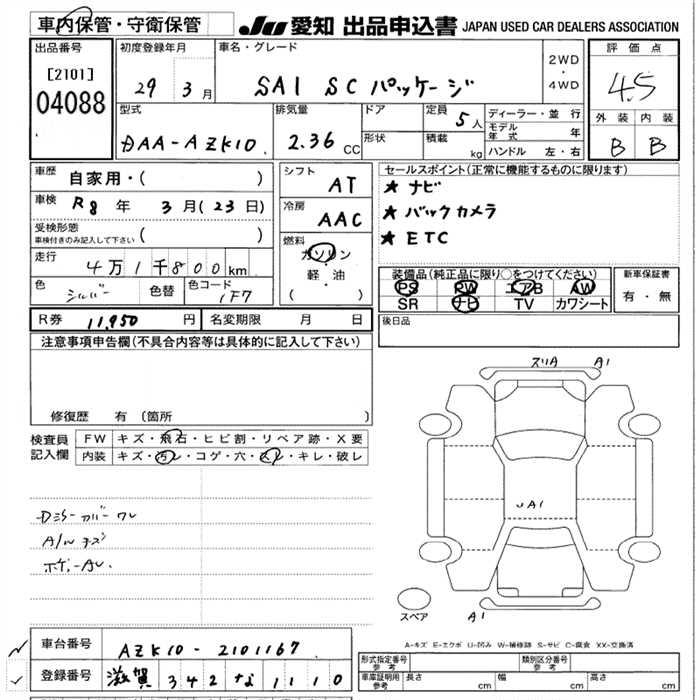 車内保管・守衛保管
JU 愛知 出品申込書 JAPAN USED CAR DEALERS ASSOCIATION
出品番号
[2101]
04088
初度登録年月
29 3月
車名・グレード
SAI SC パッケージ
2WD
・
4WD
評価点
4.5
外装 内装
B B
型式
DAA-AZK10
排気量
2.36 CC
ドア
形状
定員
5人
積載
kg
ディーラー・並行
モデル年式 年
ハンドル 左・右
車歴 自家用・( )
車検 R8年 3月(23日)
受検形態
車検付きのみ記入して下さい ( )
走行 4万1千800km
色 シルバー 色替 色コード 1F7
シフト AT
冷房 AAC
燃料
ガソリン
・
軽・油
( )
セールスポイント(正常に機能するものに限ります)
★ ナビ
★ バックカメラ
★ ETC
装備品(純正品に限り○をつけてください)
PS PW エアB AW
SR ナビ TV カワシート
新車保証書
有・無
R券 11,950円 名変期限 月 日
後日品
注意事項申告欄(不具合内容等は具体的に記入して下さい)
修復歴 有 (箇所 )
検査員記入欄
FW キズ・飛石・ヒビ割・リペア跡・X要
内装 キズ・汚レ・コゲ・穴・スレ・キレ・破レ
Dミラーカバーワレ
A/Wキズ
スリA A1
UA1
スペア
A1
A-キズ E-エクボ U-凹み W-補修跡 S-サビ C-腐食 XX-交換済
車台番号 AZK10-2101167
登録番号 滋賀 342 な 1110
形式指定番号
参考
類別区分番号
参考
車庫証明用
参考
長さ cm 幅 cm 高さ cm